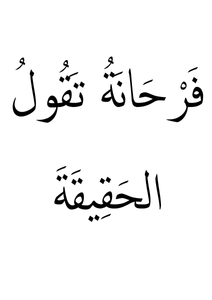 فَرْحَانَةُ تَقُولُ
الحَقِيقَةَ